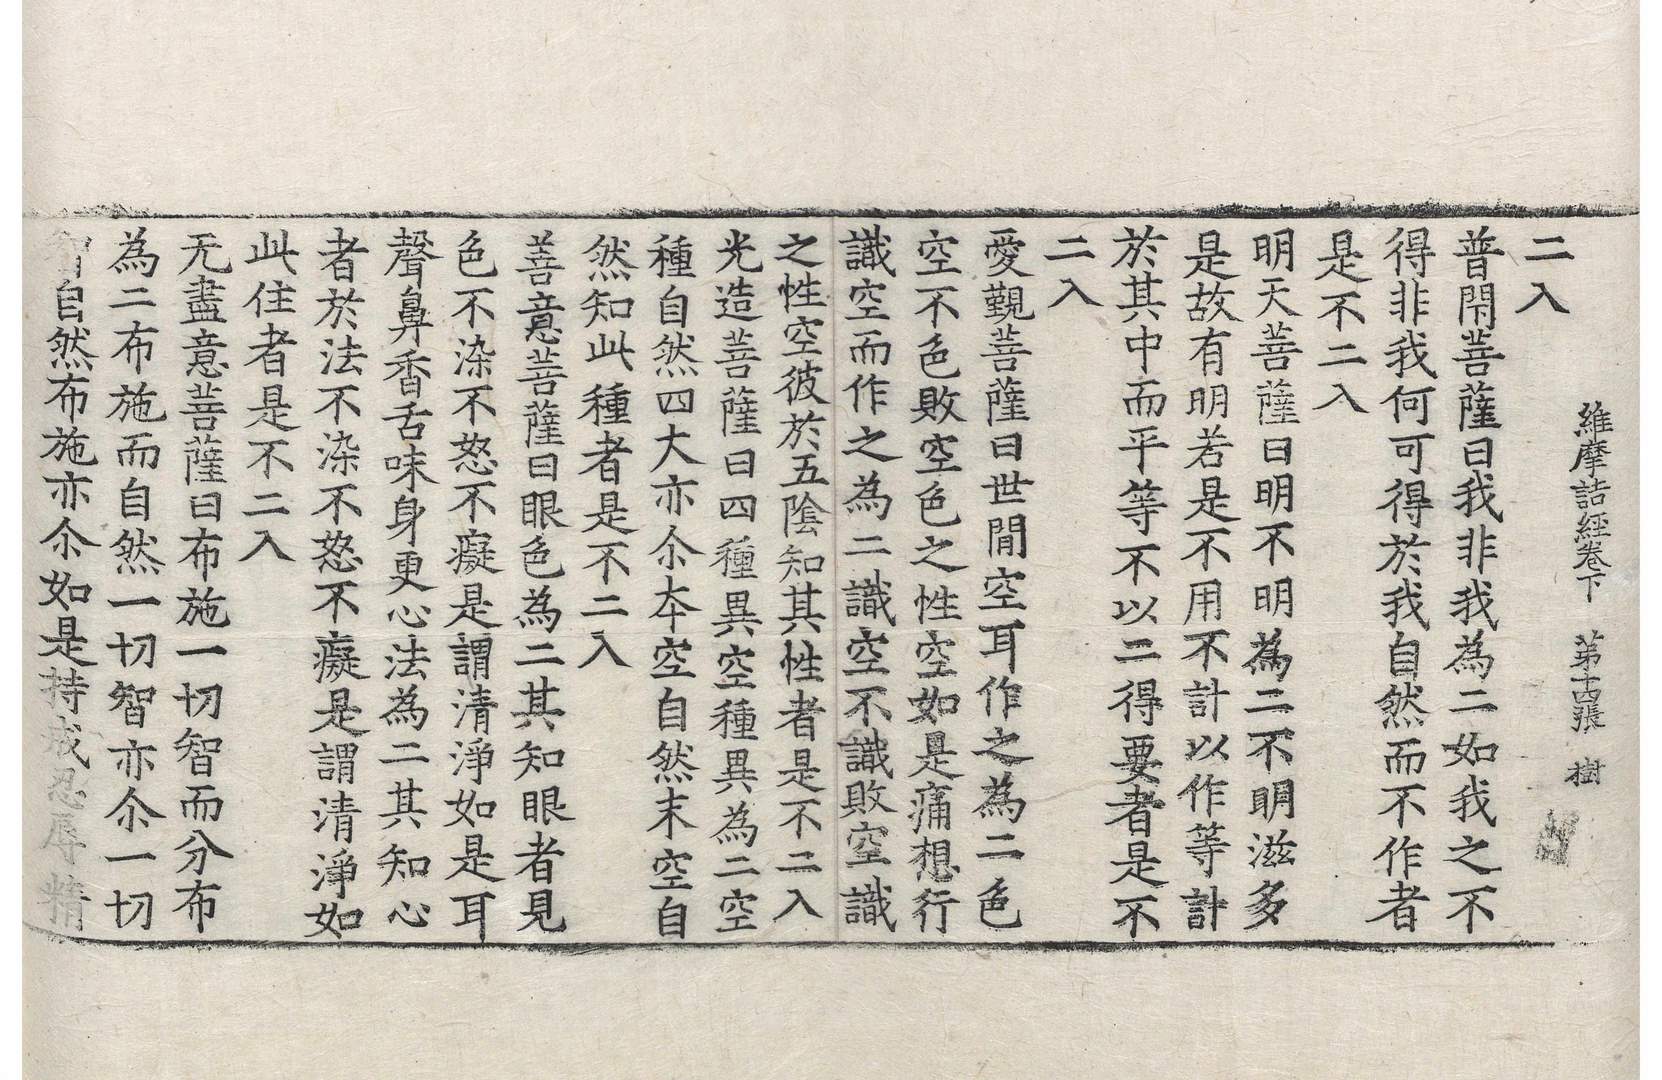 維摩詰經卷下 第十四張 樹
二入
普閇菩薩曰我非我為二如我之不
得非我何可得於我自然而不作者
是不二入
明天菩薩曰明不明為二不明滋多
是故有明若是不用不計以作等計
於其中而平等不以二得要者是不
二入
愛覲菩薩曰世閒空耳作之為二色
空不色敗空色之性空如是痛想行
識空而作之為二識空不識敗空識
之性空彼於五陰知其性者是不二入
光造菩薩曰四種異空種異為二空
種自然四大亦尒本空自然末空自
然知此種者是不二入
善意菩薩曰眼色為二其知眼者見
色不染不怒不癡是謂清淨如是耳
聲鼻香舌味身更心法為二其知心
者於法不染不怒不癡是謂清淨如
此住者是不二入
无盡意菩薩曰布施一切智而分布
為二布施而自然一切智亦尒一切
智自然布施亦尒如是持戒忍辱精